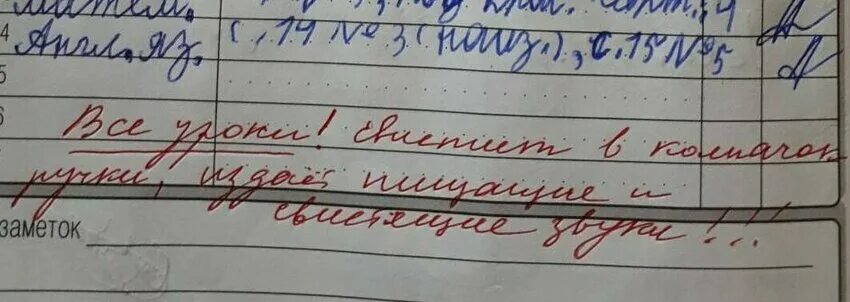 матем.
4 Англ. яз. с. 14 № 3 (наиз.), с. 15 № 5
5
6 Все уроки! свистит в колпачок
ручки, издаёт пищащие и
свистящие звуки!!!
заметок